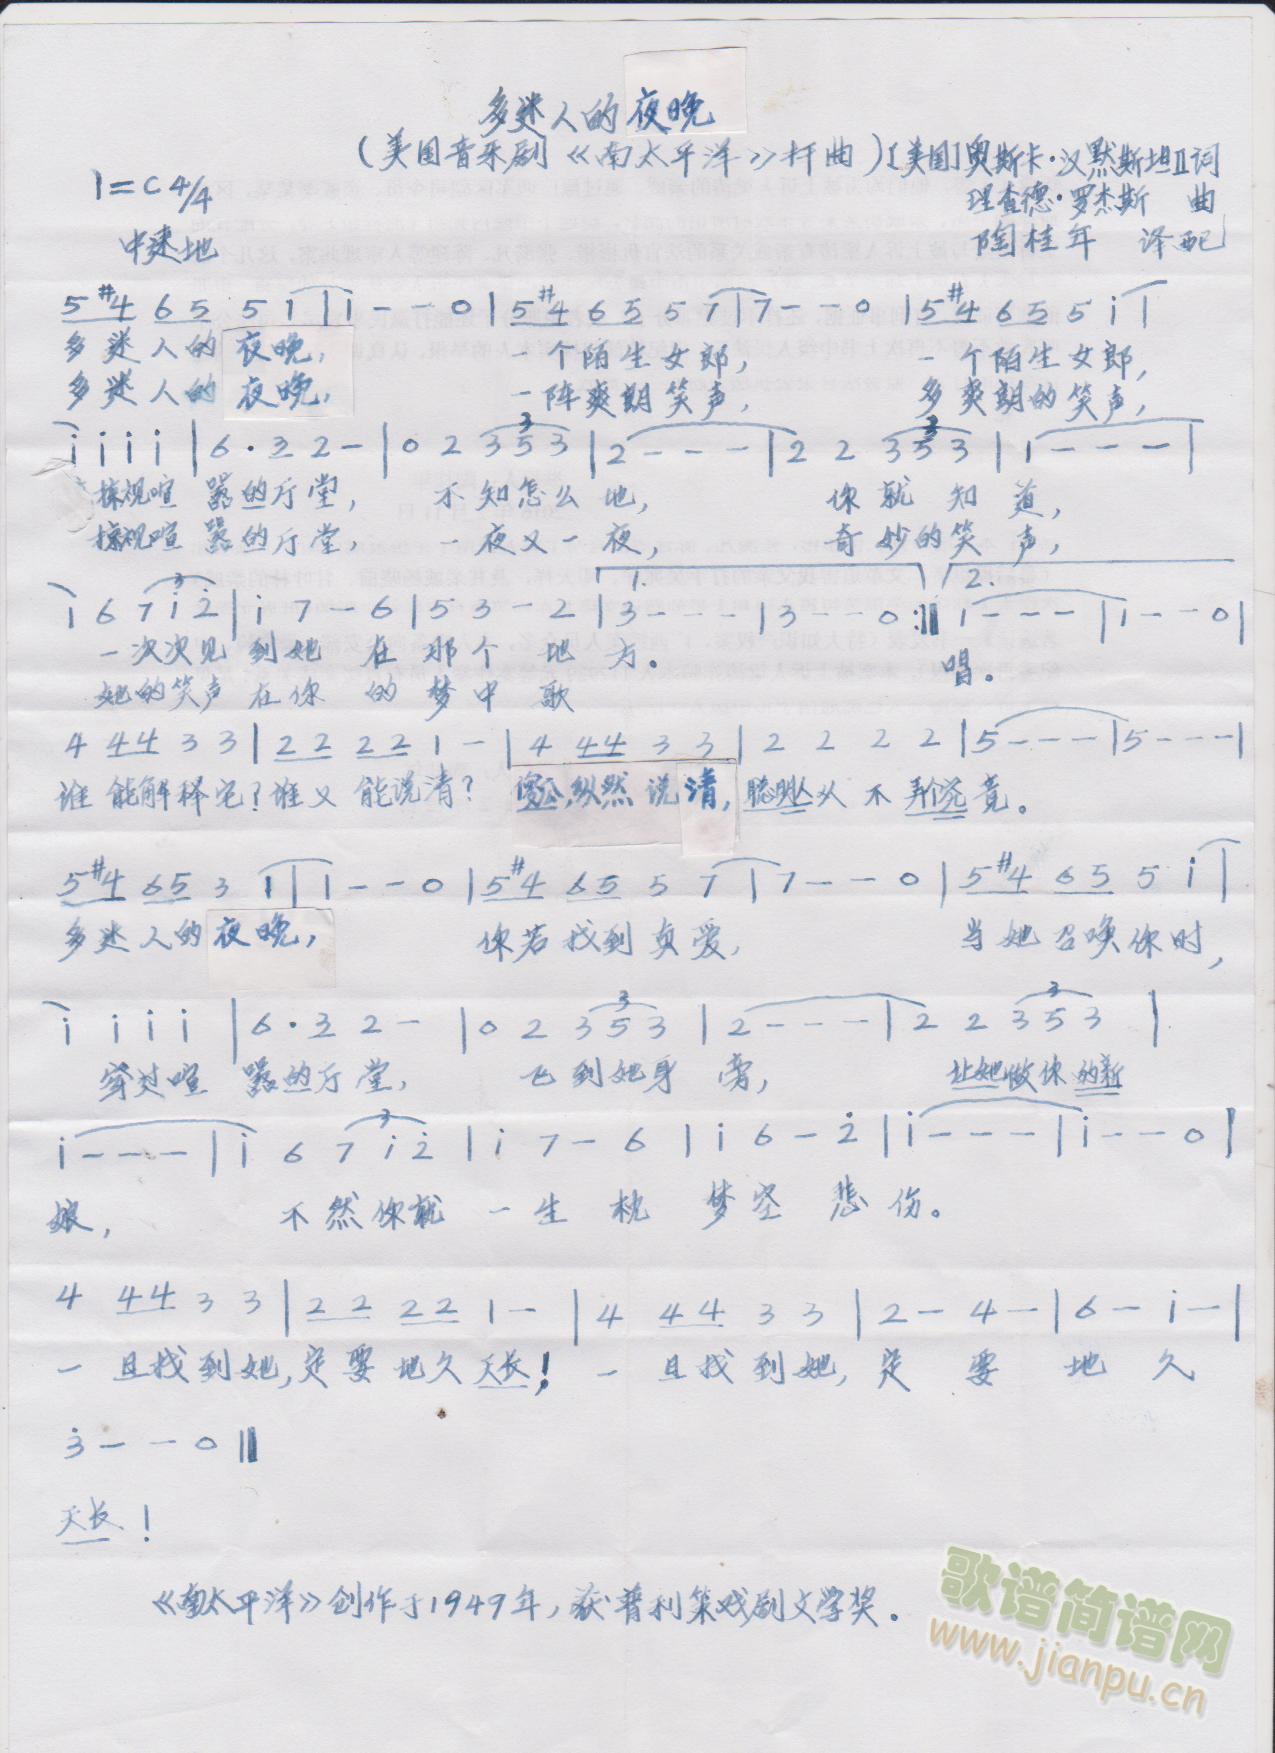 多迷人的夜晚
(美国音乐剧《南太平洋》插曲)[美国]奥斯卡·汉默斯坦Ⅱ词
1=C 4/4
理查德·罗杰斯 曲
中速地
陶桂年 译配
5 #4 6 5 5 1 | 1 - - 0 | 5 #4 6 5 5 7 | 7 - - 0 | 5 #4 6 5 5 i |
多迷人的夜晚, 一个陌生女郎, 一个陌生女郎,
多迷人的夜晚, 一阵爽朗笑声, 多爽朗的笑声,
i i i i | 6 · 3 2 - | 0 2 3 5 3 | 2 - - - | 2 2 3 5 3 | 1 - - - |
掠视喧嚣的厅堂, 不知怎么地, 你就知道,
掠视喧嚣的厅堂, 一夜又一夜, 奇妙的笑声,
1 6 7 i 2 | i 7 - 6 | 5 3 - 2 | 1. 3 - - - | 3 - - 0 :‖ 2. 1 - - - | 1 - - 0 |
一次次见到她在那个地方。 唱。
她的笑声在你的梦中歌
4 4 4 3 3 | 2 2 2 2 1 - | 4 4 4 3 3 | 2 2 2 2 | 5 - - - | 5 - - - |
谁能解释它?谁又能说清? 傻瓜,纵然说清, 聪明人从不弄个究竟。
5 #4 6 5 3 1 | 1 - - 0 | 5 #4 6 5 5 7 | 7 - - 0 | 5 #4 6 5 5 i |
多迷人的夜晚, 你若找到真爱, 当她召唤你时,
i i i i | 6 · 3 2 - | 0 2 3 5 3 | 2 - - - | 2 2 3 5 3 |
穿过喧嚣的厅堂, 飞到她身旁, 让她做你的新
i - - - | i 6 7 i 2 | i 7 - 6 | i 6 - 2 | i - - - | i - - 0 |
娘, 不然你就一生枕梦空悲伤。
4 4 4 3 3 | 2 2 2 2 1 - | 4 4 4 3 3 | 2 - 4 - | 6 - i - |
一旦找到她,定要地久天长! 一旦找到她,定要地久
3 - - 0 ‖
天长!
《南太平洋》创作于1949年,获普利策戏剧文学奖.
歌谱简谱网
www.jianpu.cn